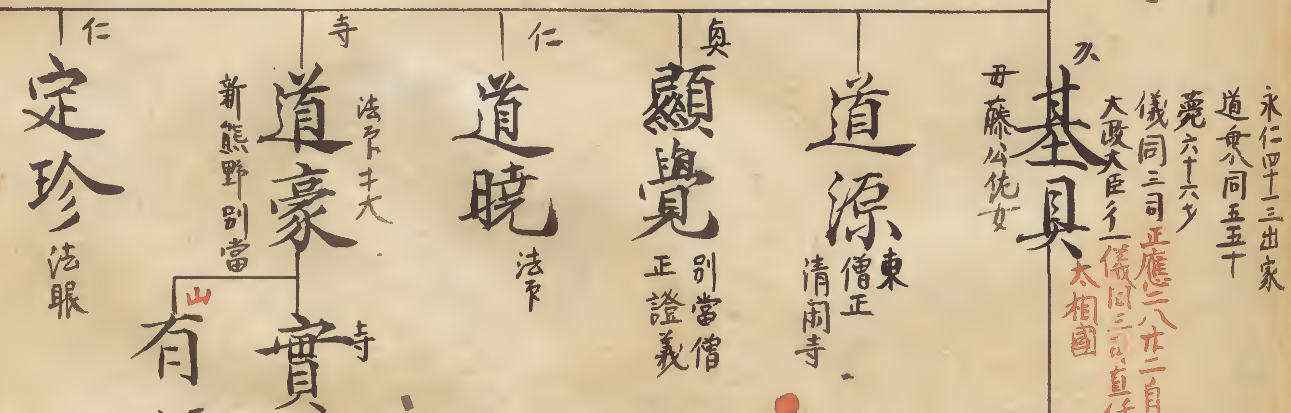 永仁四十一三出家
道乗同五五十
薨六十六才
儀同三司正應二八廿二自
大政大臣従一儀同三司直任
太相國
久
基具
母藤公佐女
道源
東
僧正
清閑寺
興
顯覺
別當僧
正證義
仁
道暁
法印
寺
道豪
法印
新熊野別當
寺
實
山
有
仁
定珍
法眼